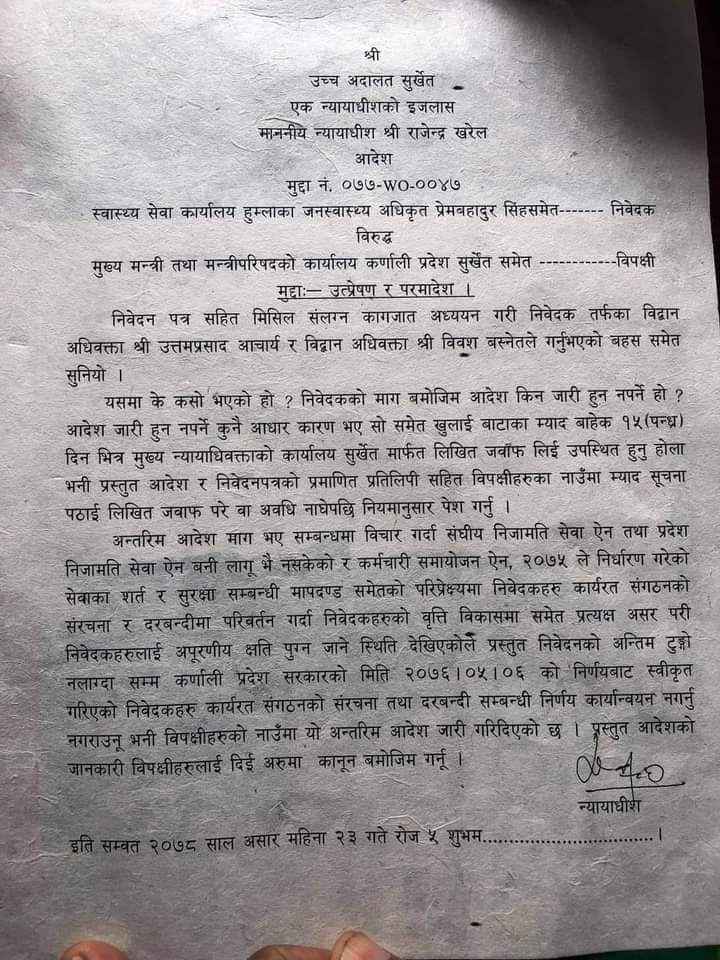 श्री
उच्च अदालत सुर्खेत
एक न्यायाधीशको इजलास
माननीय न्यायाधीश श्री राजेन्द्र खरेल
आदेश
मुद्दा नं. ०७७-WO-००४७
स्वास्थ्य सेवा कार्यालय हुम्लाका जनस्वास्थ्य अधिकृत प्रेमबहादुर सिंहसमेत------- निवेदक
विरुद्ध
मुख्य मन्त्री तथा मन्त्रीपरिषदको कार्यालय कर्णाली प्रदेश सुर्खेत समेत ------------विपक्षी
मुद्दाः— उत्प्रेषण र परमादेश ।
निवेदन पत्र सहित मिसिल संलग्न कागजात अध्ययन गरी निवेदक तर्फका विद्वान
अधिवक्ता श्री उत्तमप्रसाद आचार्य र विद्वान अधिवक्ता श्री विवश बस्नेतले गर्नुभएको बहस समेत
सुनियो ।
यसमा के कसो भएको हो ? निवेदकको माग बमोजिम आदेश किन जारी हुन नपर्ने हो ?
आदेश जारी हुन नपर्ने कुनै आधार कारण भए सो समेत खुलाई बाटाका म्याद बाहेक १५(पन्ध्र)
दिन भित्र मुख्य न्यायाधिवक्ताको कार्यालय सुर्खेत मार्फत लिखित जवाफ लिई उपस्थित हुनु होला
भनी प्रस्तुत आदेश र निवेदनपत्रको प्रमाणित प्रतिलिपी सहित विपक्षीहरुका नाउँमा म्याद सूचना
पठाई लिखित जवाफ परे वा अवधि नाघेपछि नियमानुसार पेश गर्नु ।
अन्तरिम आदेश माग भए सम्बन्धमा विचार गर्दा संघीय निजामति सेवा ऐन तथा प्रदेश
निजामति सेवा ऐन बनी लागू भै नसकेको र कर्मचारी समायोजन ऐन, २०७५ ले निर्धारण गरेको
सेवाका शर्त र सुरक्षा सम्बन्धी मापदण्ड समेतको परिप्रेक्ष्यमा निवेदकहरु कार्यरत संगठनको
संरचना र दरबन्दीमा परिवर्तन गर्दा निवेदकहरुको वृत्ति विकासमा समेत प्रत्यक्ष असर परी
निवेदकहरुलाई अपूरणीय क्षति पुग्न जाने स्थिति देखिएकोले प्रस्तुत निवेदनको अन्तिम टुङ्गो
नलाग्दा सम्म कर्णाली प्रदेश सरकारको मिति २०७६।०५।०६ को निर्णयबाट स्वीकृत
गरिएको निवेदकहरु कार्यरत संगठनको संरचना तथा दरबन्दी सम्बन्धी निर्णय कार्यान्वयन नगर्नु
नगराउनू भनी विपक्षीहरुको नाउँमा यो अन्तरिम आदेश जारी गरिदिएको छ । प्रस्तुत आदेशको
जानकारी विपक्षीहरुलाई दिई अरुमा कानून बमोजिम गर्नू ।
न्यायाधीश
इति सम्वत २०७८ साल असार महिना २३ गते रोज ५ शुभम्................................ ।